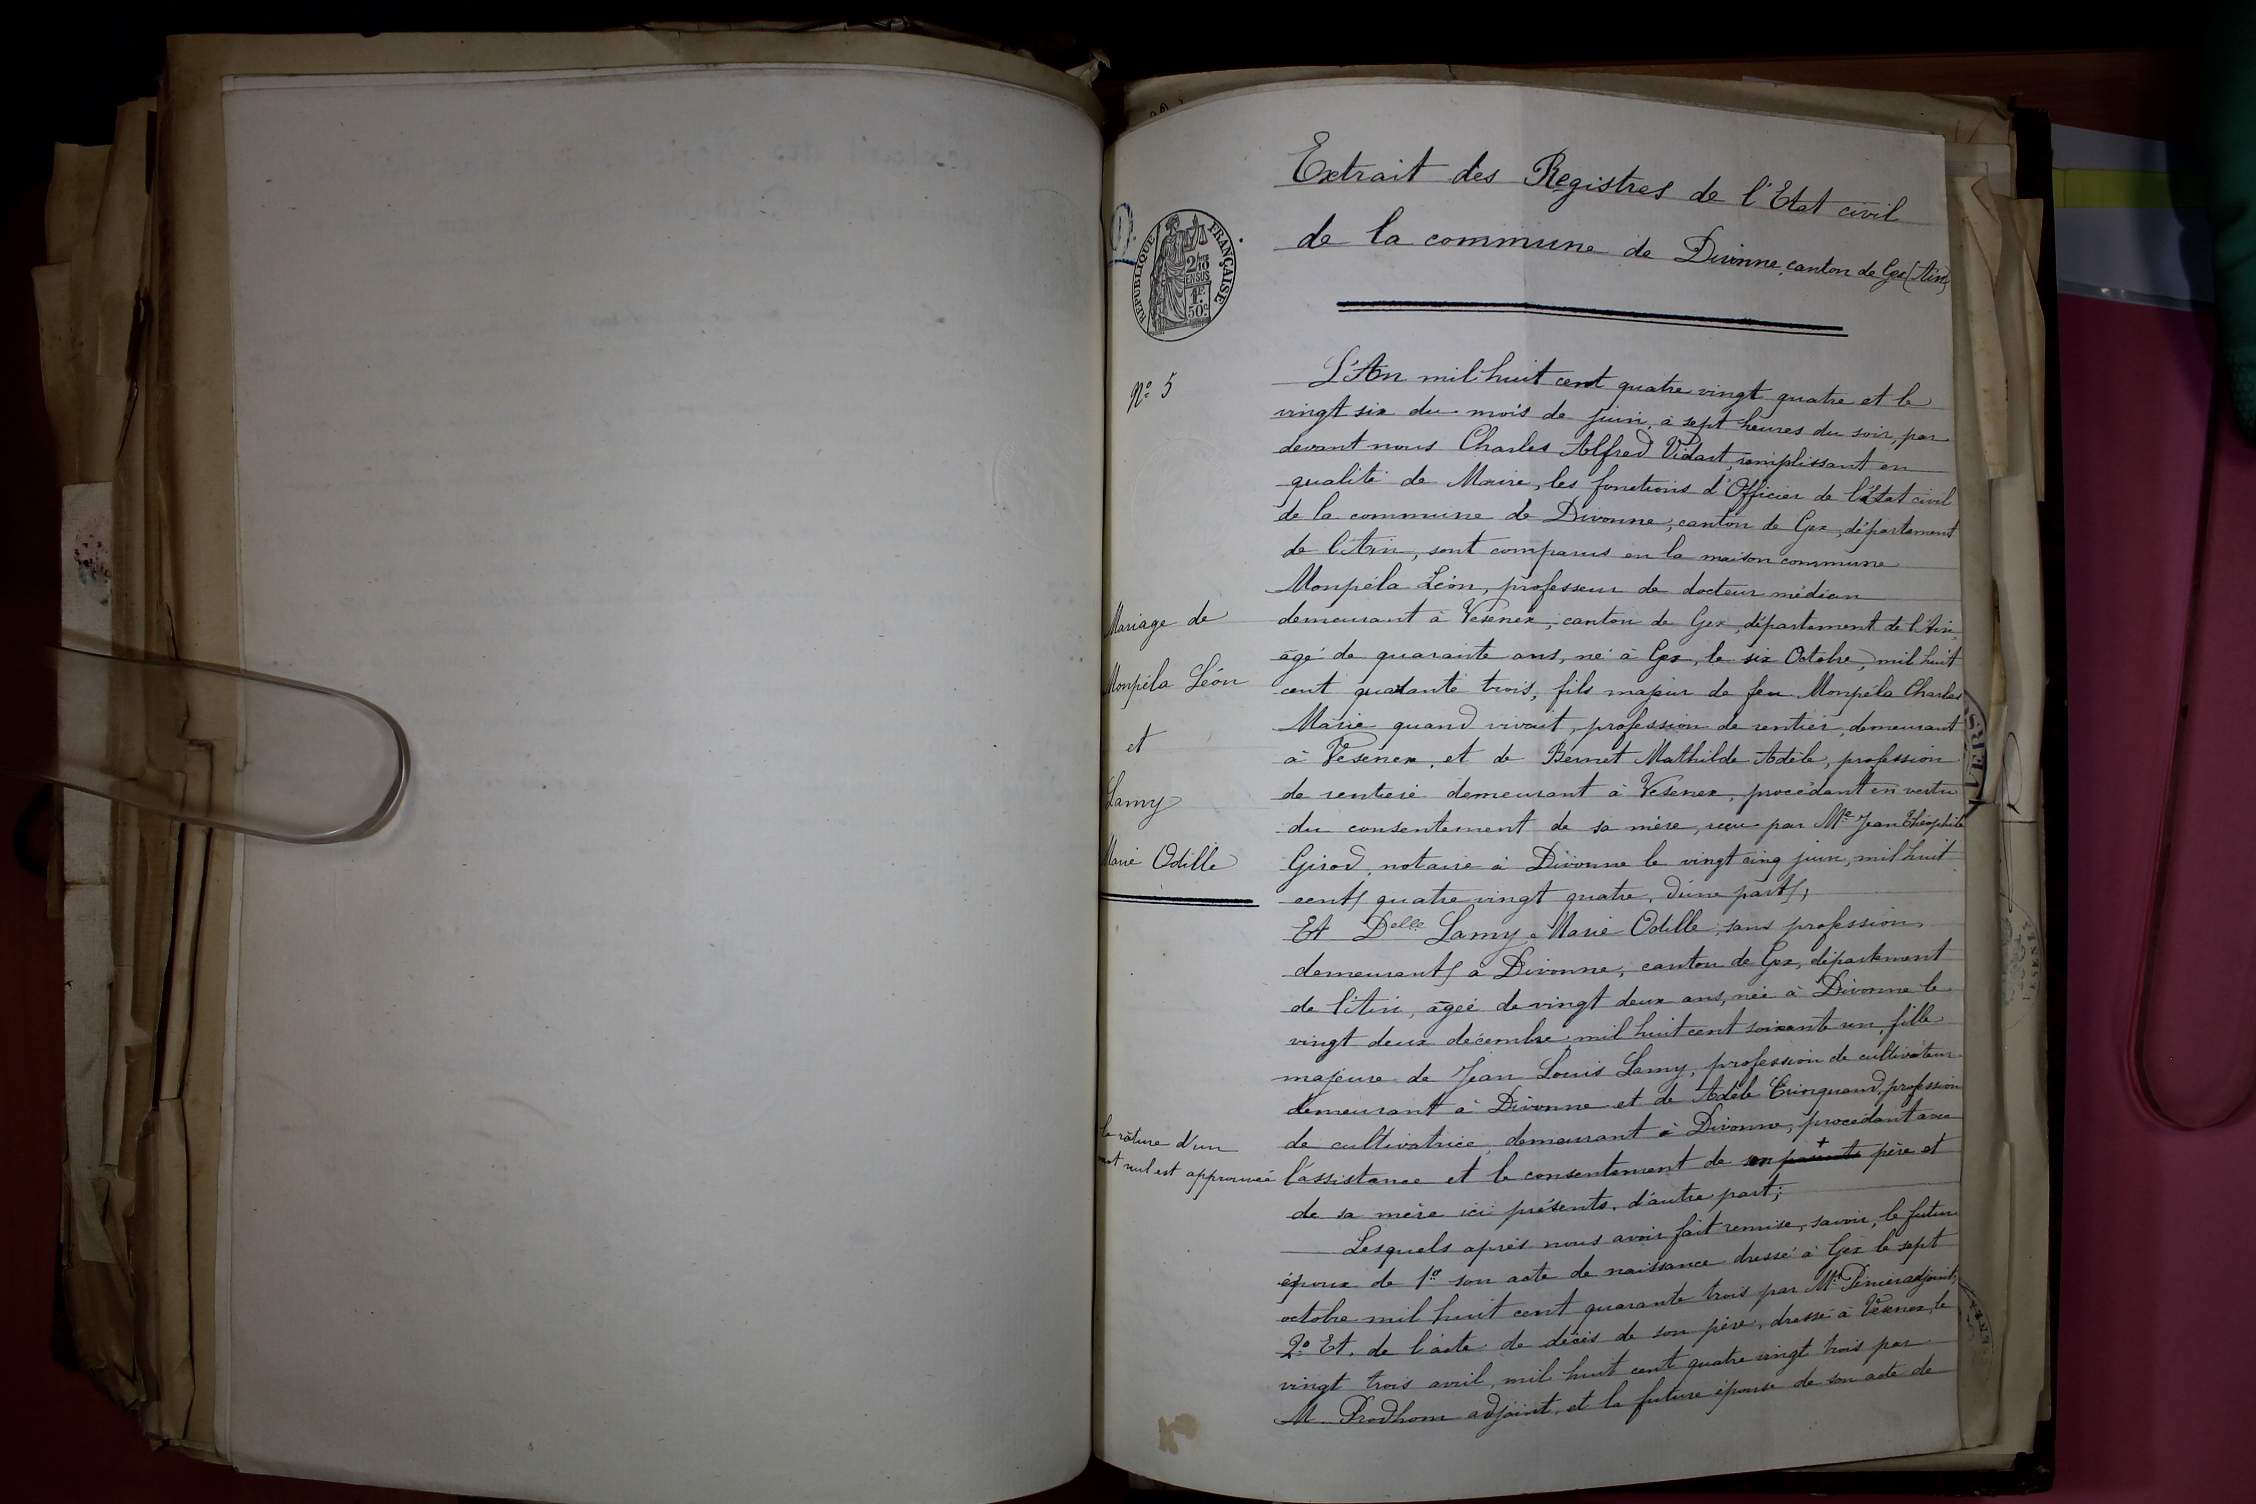 Extrait des Registres de l'Etat civil
de la commune de Divonne, canton de Gex (Ain)
RÉPUBLIQUE FRANÇAISE
2/10
EN SUS
1F
50c
N° 5
L'An mil huit cent quatre vingt quatre et le
vingt six du mois de juin, à sept heures du soir, par
devant nous Charles Alfred Vidart, remplissant en
qualité de Maire, les fonctions d'Officier de l'Etat civil
de la commune de Divonne, canton de Gex, département
de l'Ain, sont comparus en la maison commune
Monpéla Léon, professeur de docteur médian
demeurant à Vesenex, canton de Gex, département de l'Ain,
âgé de quarante ans, né à Gex, le six Octobre, mil huit
cent quatante trois, fils majeur de feu Monpéla Charles
Marie quand vivait, profession de rentier, demeurant
à Vesenex, et de Bernet Mathilde Adèle, profession
de rentière demeurant à Vesenex, procédant en vertu
du consentement de sa mère, reçu par Me Jean Théophile
Girod, notaire à Divonne le vingt cinq juin, mil huit
cent quatre vingt quatre, d'une part,
Et Delle Lamy Marie Odille, sans profession,
demeurant à Divonne, canton de Gex, département
de l'Ain, âgée de vingt deux ans, née à Divonne le
vingt deux décembre mil huit cent soixante un, fille
majeure de Jean Louis Lamy, profession de cultivateur
demeurant à Divonne et de Adèle Crinquand, profession
de cultivatrice, demeurant à Divonne, procédant avec
l'assistance et le consentement de son père et
de sa mère ici présents, d'autre part;
Lesquels après nous avoir fait remise, savoir, le futur
époux de 1° son acte de naissance dressé à Gex le sept
octobre mil huit cent quarante trois par Mr adjoint,
2° Et, de l'acte de décès de son père, dressé à Vesenex, le
vingt trois avril, mil huit cent quatre vingt trois par
M. Prodhom adjoint, et la future épouse de son acte de
Mariage de
Monpéla Léon
et
Lamy
Marie Odille
la râture d'un
mot nul est approuvée